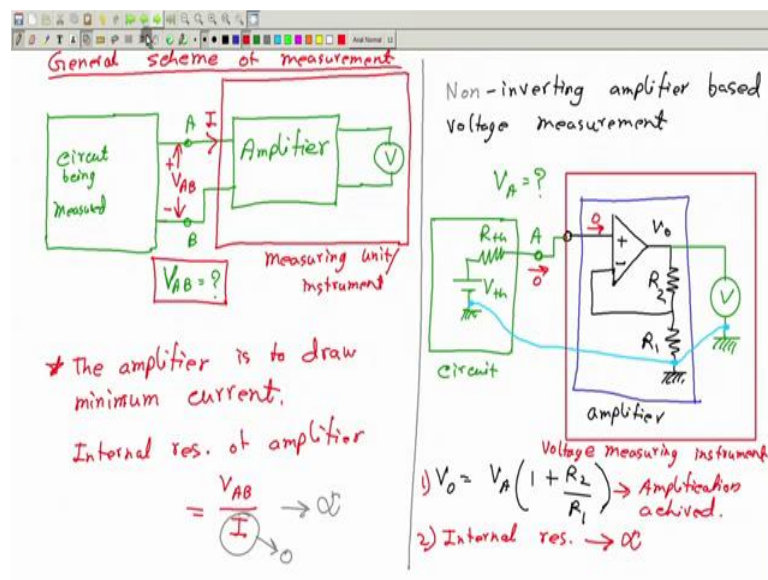 General scheme of measurement
A
I
Circuit
being
Measured
+
V_AB
-
B
Amplifier
V
V_AB = ?
measuring unit/
instrument
* The amplifier is to draw
minimum current.
Internal res. of amplifier
= V_AB / I → ∝
→ 0
Non-inverting amplifier based
voltage measurement
V_A = ?
R_th
A
0
0
V_th
+
-
V_o
R_2
R_1
V
circuit
amplifier
Voltage measuring instrument
1) V_o = V_A (1 + R_2 / R_1) → Amplification
achived.
2) Internal res. → ∝